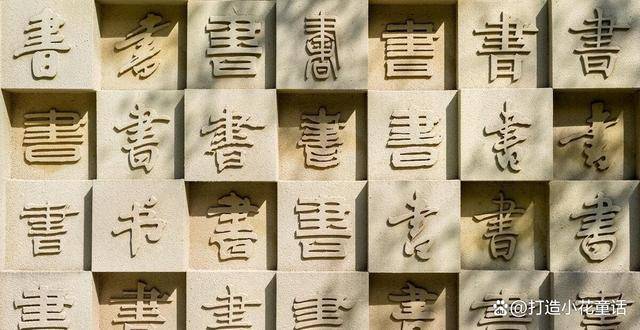 書書書書書書書
書書書書書書書
書书書書書書書
書書書書書書書
@打造小花童话